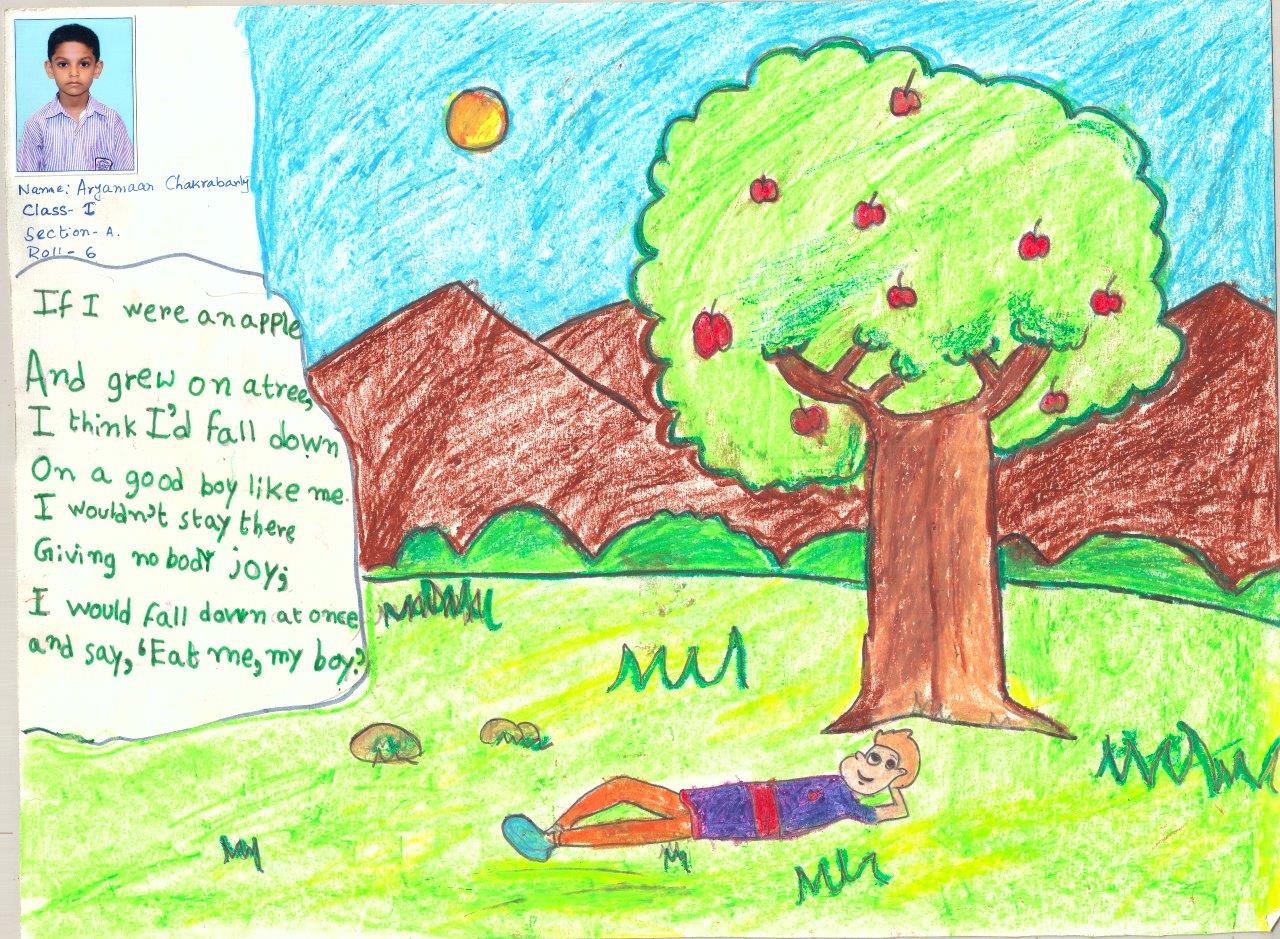 Name: Aryamaan Chakrabarty
Class- I
Section- A.
Roll- 6
If I were an apple
And grew on a tree,
I think I'd fall down
On a good boy like me.
I wouldn't stay there
Giving nobody joy;
I would fall down at once
and say, 'Eat me, my boy?